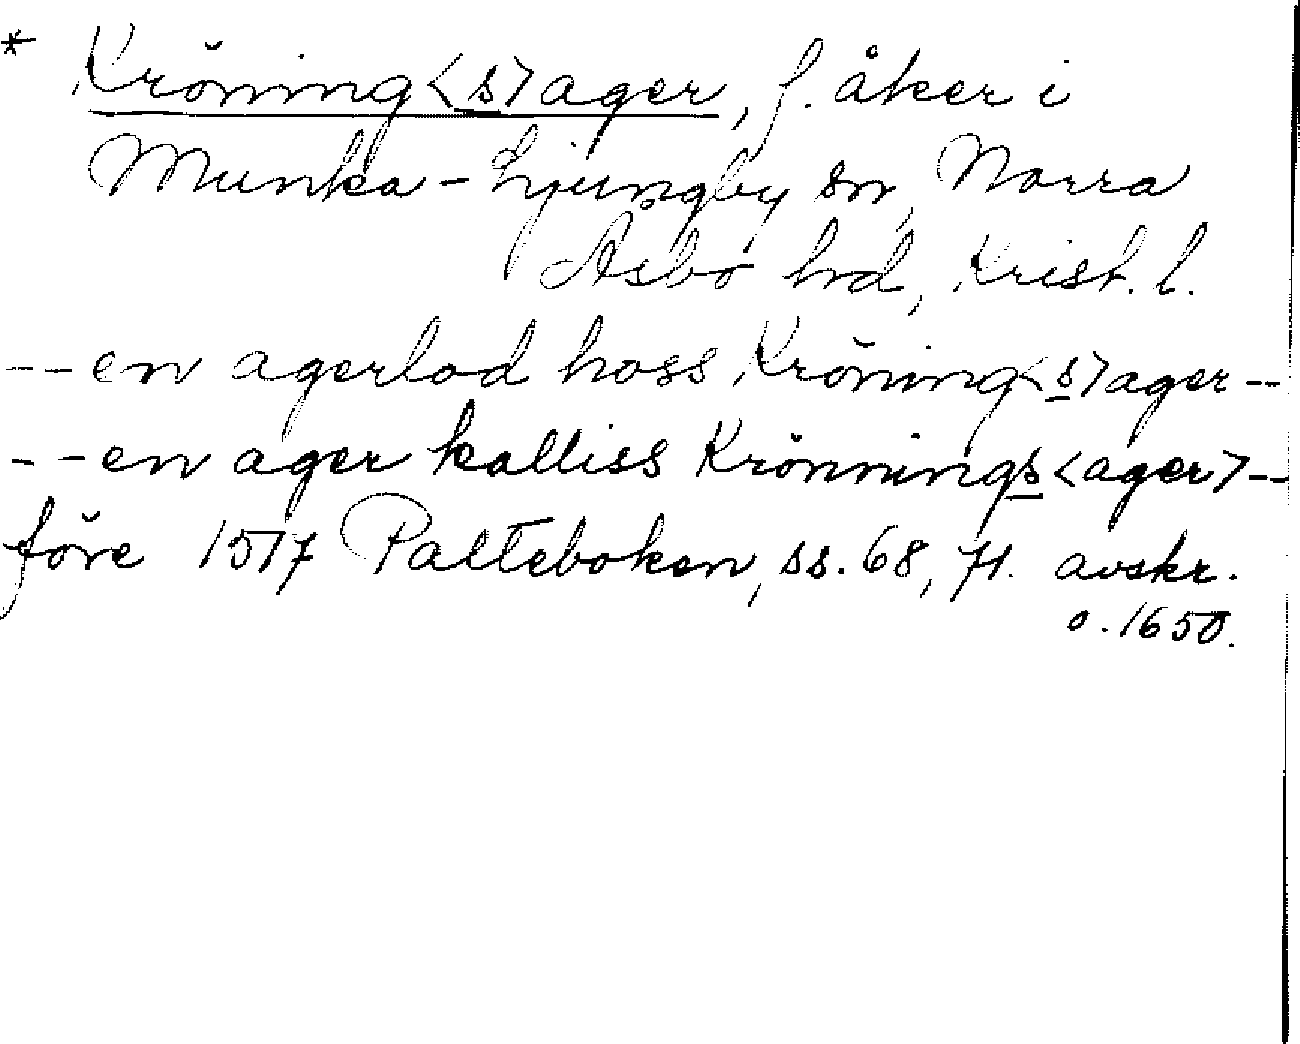 * Kröning<s>ager, f. åker i
Munka-Ljungby sn, Norra
Åsbo hrd, Krist. l.
-- en agerlod hoss Kröning<s>ager --
-- en ager kalliss Krönnings<ager> --
före 1517 Palteboken, ss. 68, 71. avskr.
o. 1650.